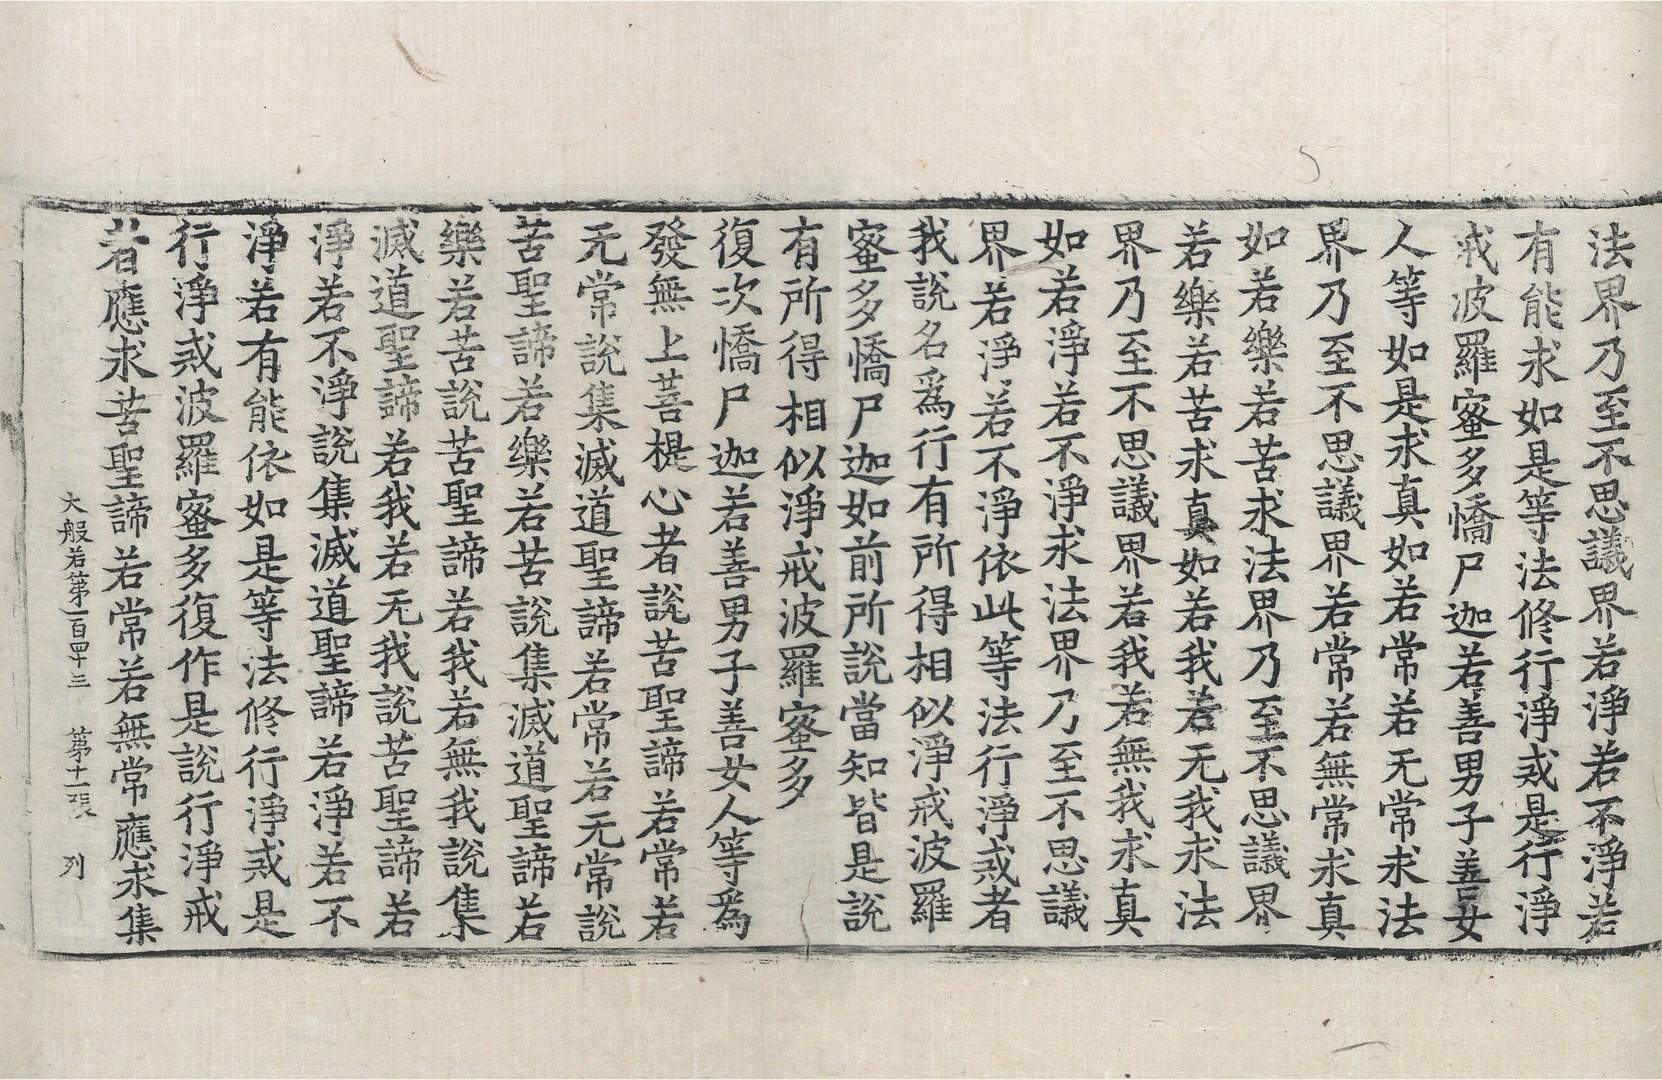 法界乃至不思議界若淨若不淨若
有能求如是等法修行淨戒是行淨
戒波羅蜜多憍尸迦若善男子善女
人等如是求真如若常若无常求法
界乃至不思議界若常若無常求真
如若樂若苦求法界乃至不思議界
若樂若苦求真如若我若无我求法
界乃至不思議界若我若無我求真
如若淨若不淨求法界乃至不思議
界若淨若不淨依此等法行淨戒者
我說名爲行有所得相似淨戒波羅
蜜多憍尸迦如前所說當知皆是說
有所得相似淨戒波羅蜜多
復次憍尸迦若善男子善女人等爲
發無上菩提心者說苦聖諦若常若
无常說集滅道聖諦若常若无常說
苦聖諦若樂若苦說集滅道聖諦若
樂若苦說苦聖諦若我若無我說集
滅道聖諦若我若无我說苦聖諦若
淨若不淨說集滅道聖諦若淨若不
淨若有能依如是等法修行淨戒是
行淨戒波羅蜜多復作是說行淨戒
者應求苦聖諦若常若無常應求集
大般若第一百四十三　第十一張　列